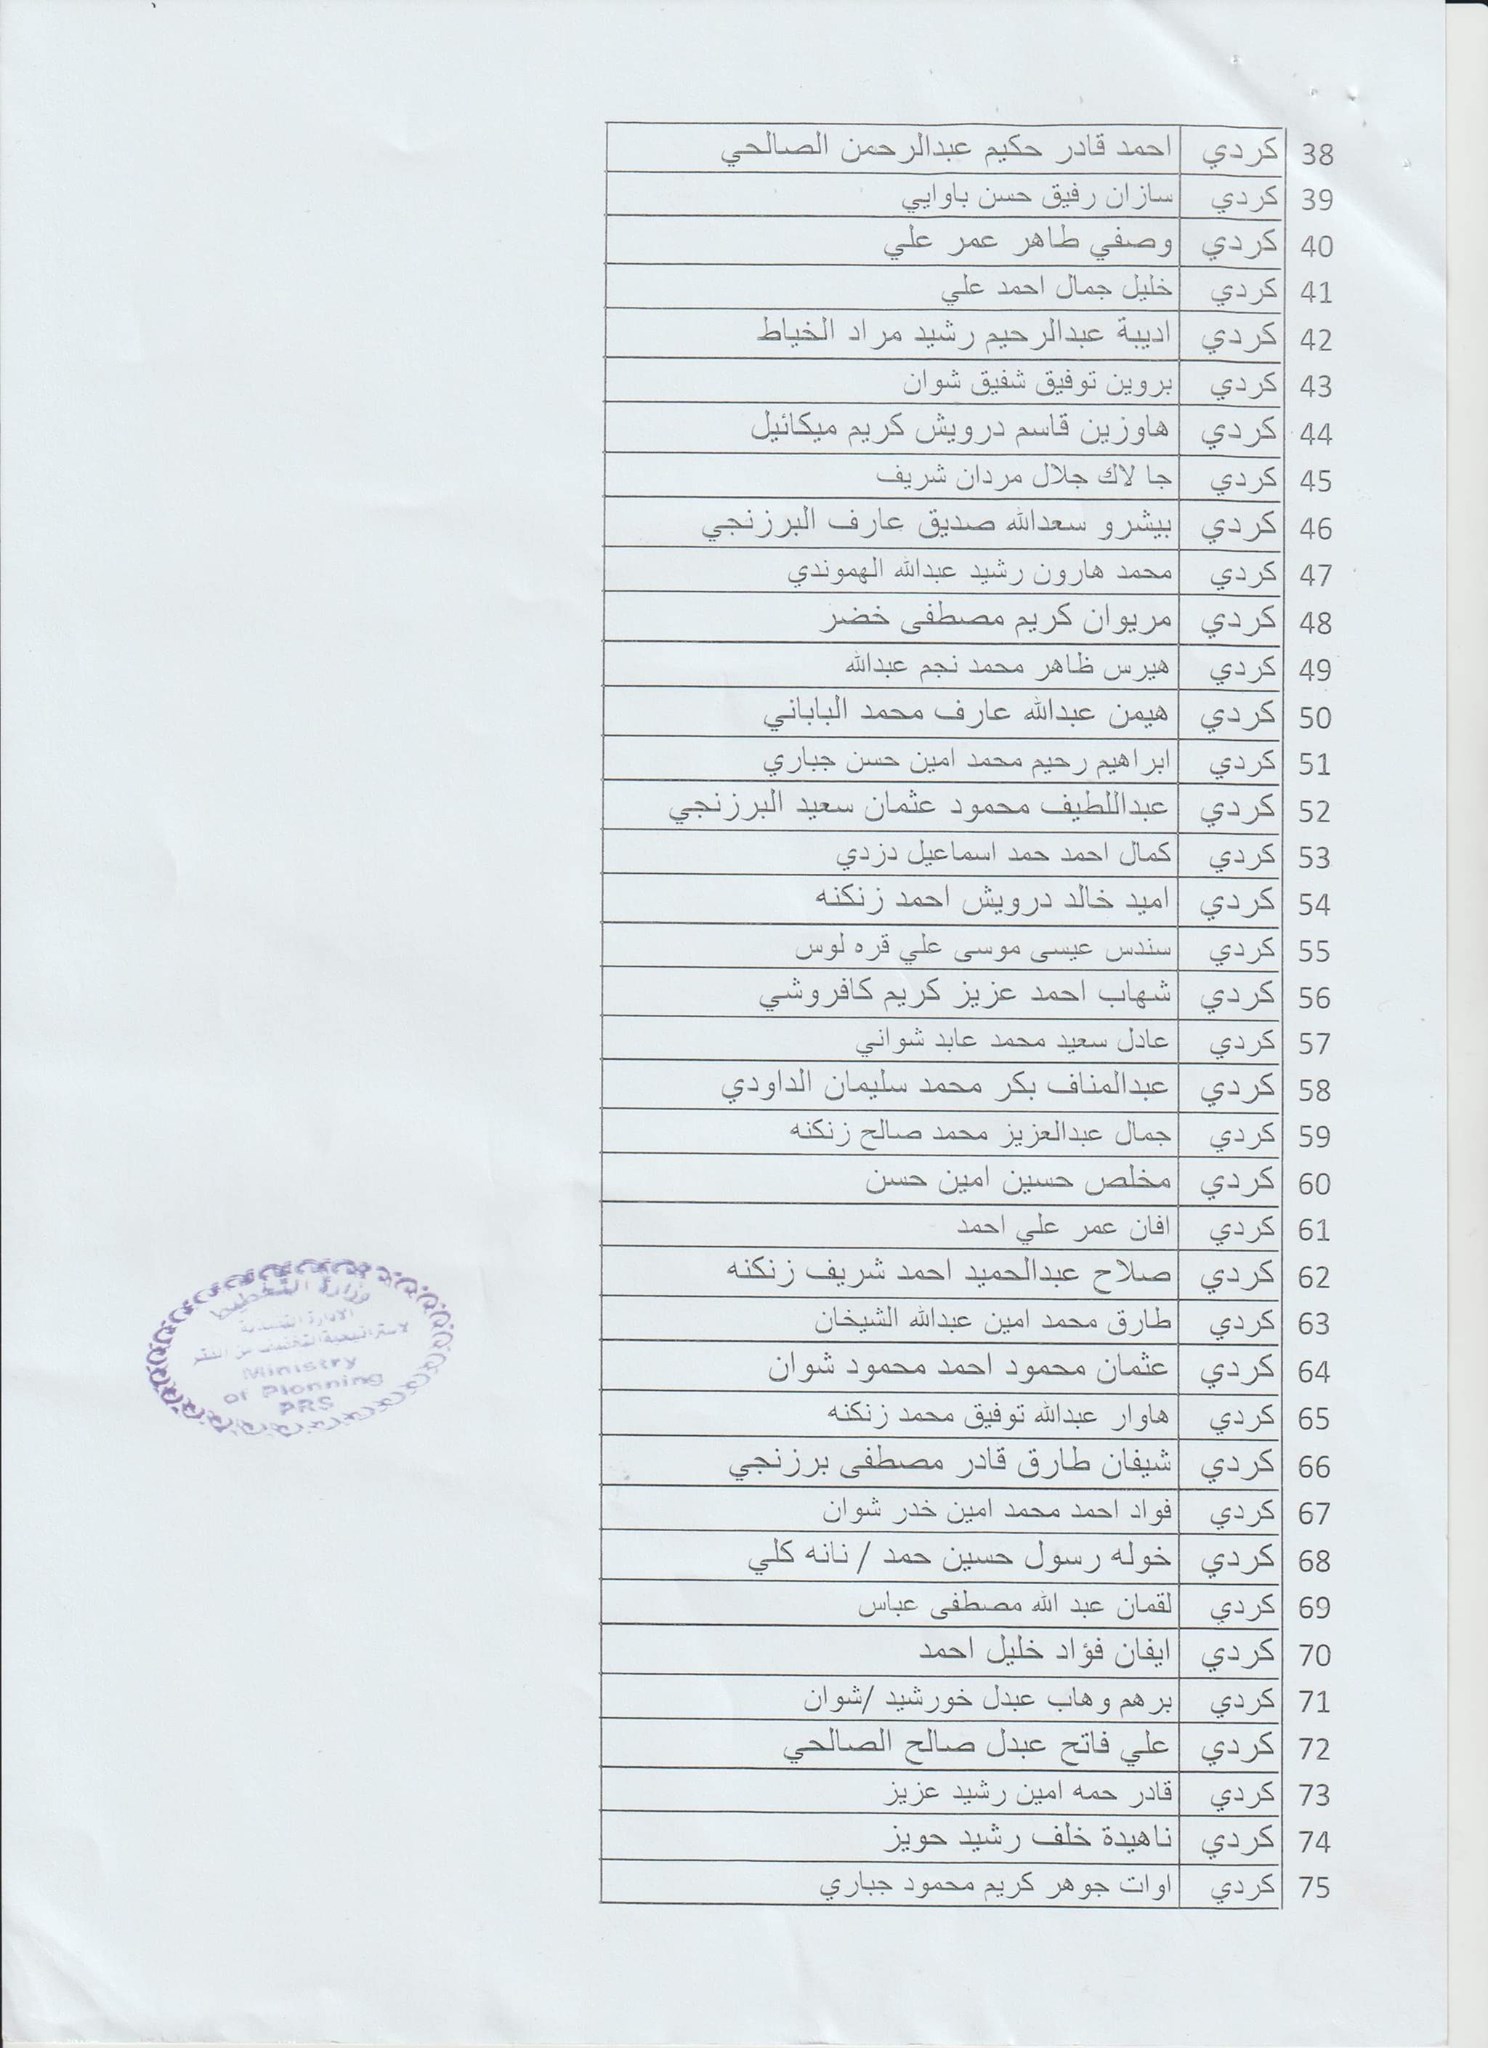 38 كردي احمد قادر حكيم عبدالرحمن الصالحي
39 كردي سازان رفيق حسن باوايي
40 كردي وصفي طاهر عمر علي
41 كردي خليل جمال احمد علي
42 كردي اديبة عبدالرحيم رشيد مراد الخياط
43 كردي بروين توفيق شفيق شوان
44 كردي هاوزين قاسم درويش كريم ميكائيل
45 كردي جا لاك جلال مردان شريف
46 كردي بيشرو سعدالله صديق عارف البرزنجي
47 كردي محمد هارون رشيد عبدالله الهموندي
48 كردي مريوان كريم مصطفى خضر
49 كردي هيرس ظاهر محمد نجم عبدالله
50 كردي هيمن عبدالله عارف محمد الباباني
51 كردي ابراهيم رحيم محمد امين حسن جباري
52 كردي عبداللطيف محمود عثمان سعيد البرزنجي
53 كردي كمال احمد حمد اسماعيل دزدي
54 كردي اميد خالد درويش احمد زنكنه
55 كردي سندس عيسى موسى علي قره لوس
56 كردي شهاب احمد عزيز كريم كافروشي
57 كردي عادل سعيد محمد عابد شواني
58 كردي عبدالمناف بكر محمد سليمان الداودي
59 كردي جمال عبدالعزيز محمد صالح زنكنه
60 كردي مخلص حسين امين حسن
61 كردي افان عمر علي احمد
62 كردي صلاح عبدالحميد احمد شريف زنكنه
63 كردي طارق محمد امين عبدالله الشيخان
64 كردي عثمان محمود احمد محمود شوان
65 كردي هاوار عبدالله توفيق محمد زنكنه
66 كردي شيفان طارق قادر مصطفى برزنجي
67 كردي فواد احمد محمد امين خدر شوان
68 كردي خوله رسول حسين حمد / نانه كلي
69 كردي لقمان عبد الله مصطفى عباس
70 كردي ايفان فؤاد خليل احمد
71 كردي برهم وهاب عبدل خورشيد /شوان
72 كردي علي فاتح عبدل صالح الصالحي
73 كردي قادر حمه امين رشيد عزيز
74 كردي ناهيدة خلف رشيد حويز
75 كردي اوات جوهر كريم محمود جباري
وزارة التخطيط
الادارة التنفيذية
لاستراتيجية التخفيف من الفقر
Ministry
of Planning
PRS